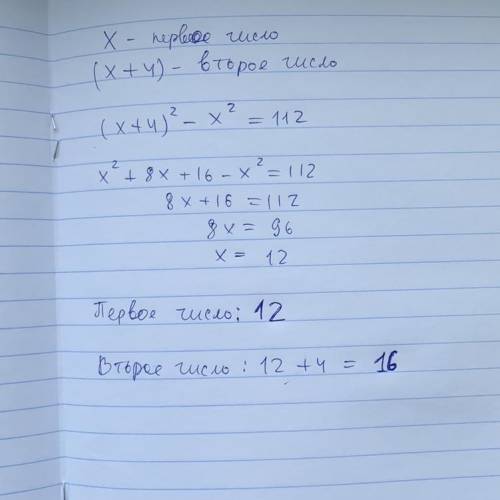 x - первое число
(x+4) - второе число
(x+4)² - x² = 112
x² + 8x + 16 - x² = 112
8x + 16 = 112
8x = 96
x = 12
Первое число: 12
Второе число: 12 + 4 = 16